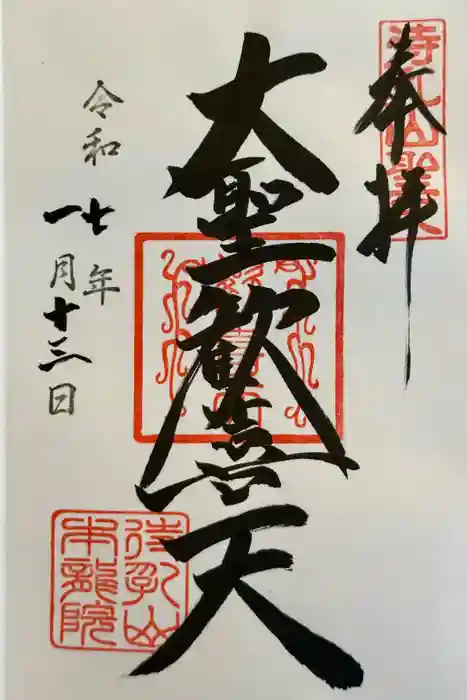 奉拝
大聖歓喜天
令和
七年
一月十三日
待乳山
本龍院